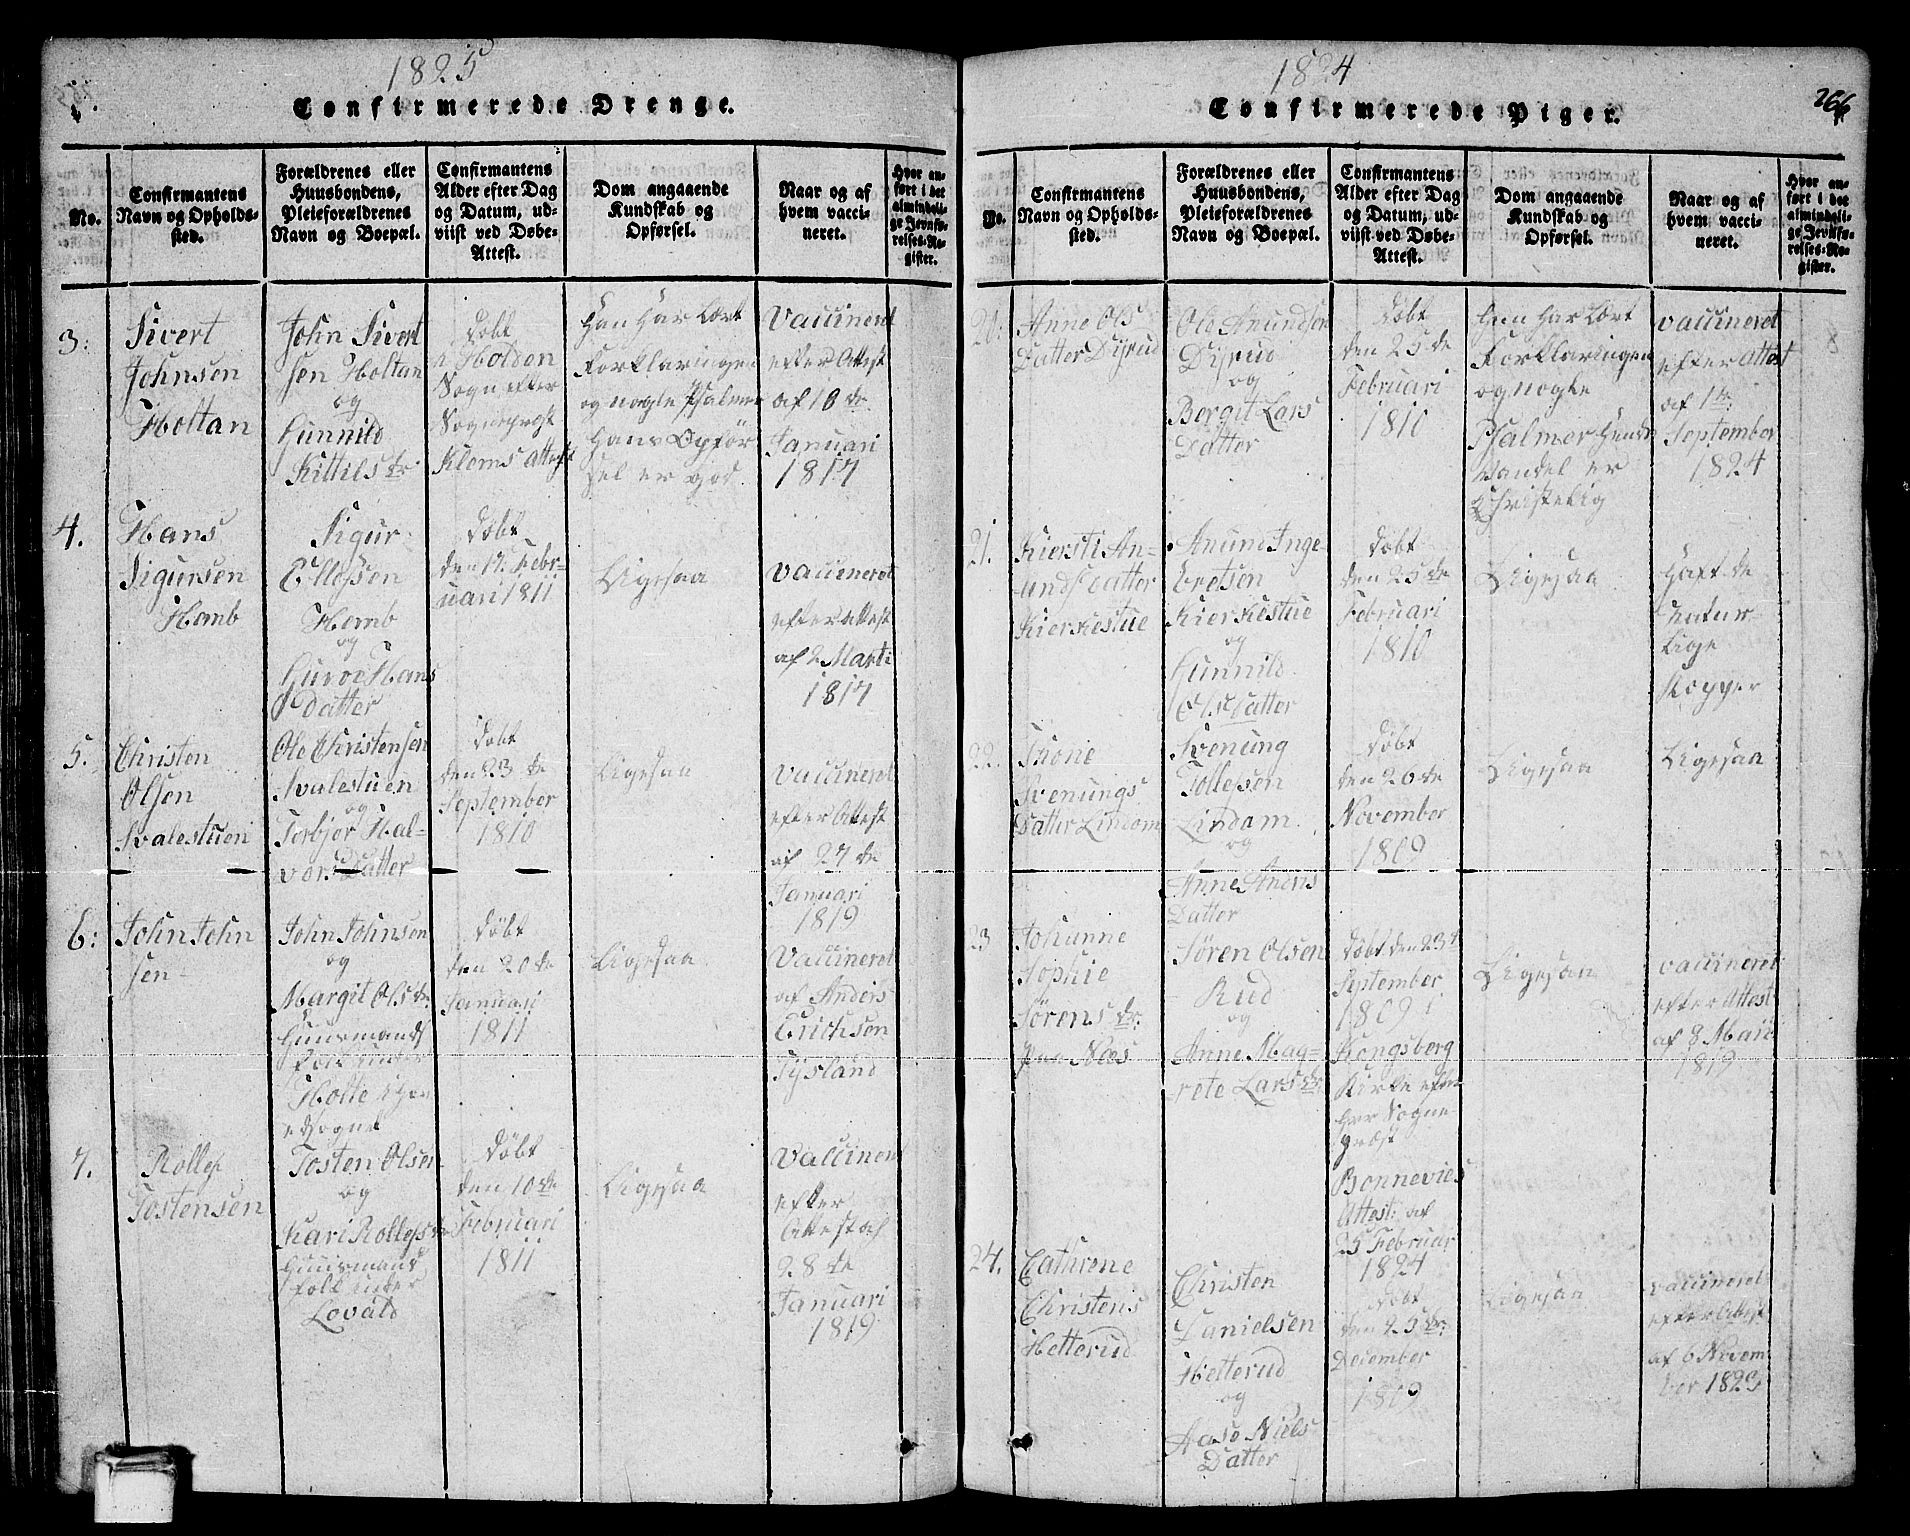 1825
Confirmerede Drenge.
No.
Confirmantens
Navn og Opholds-
sted.
Forældrenes eller
Huusbondens,
Pleieforældrenes
Navn og Boepæl.
Confirmantens
Alder efter Dag
og Datum, ud-
viist ved Døbe-
Attest.
Dom angaaende
Kundskab og
Opførsel.
Naar og af
hvem vacci-
neret.
Hvor an-
ført i det
almindeli-
ge Jevnfø-
relses-Re-
gister.
3:
Sivert
Johnsen
Holtan
John Sivert
sen Holtan
og
Gunnild
Kittils dr.
Døbt
i Holden
Sogn efter
Sognepræst
Klems attest
Han Har Lært
Forklaringen
og nogle Psalmer
Hans Opfør
sel er god.
Vaccineret
efter Attest
af 18 de
Januari
1817
4.
Hans
Sigursen
Homb
Sigur
Ellefsen
Homb
og
Guroe Hans
Datter
Døbt
den 17. Febr-
uari 1811
Ligesaa
Vaccineret
efter Attest
af 2 Marti
1817
5.
Christen
Olsen
Svalestuen
Ole Christensen
Svalestuen
og
Torbjør Hal-
vors Datter
Døbt
den 23 de
September
1810
Ligesaa
Vaccineret
efter Attest
af 27 de
Januari
1819
6:
John John
sen-
John Johnsen
og
Margit Ols dr.
Huusmands
folk under
Holte i
edsognet
Døbt
den 20 de
Januari
1811
Ligesaa
Vaccineret
af Anders
Erichsen
Tysland
7.
Rollef
Tostensen
Tosten Olsen
og
Kari Rollefs dr
Huusmands
folk under
Lovald
Døbt
den 10 de
Februari
1811
Ligesaa
Vaccineret
efter
Attest af
28 de
Januari
1819
1824
266
Confirmerede Piger.
No.
Confirmantens
Navn og Opholds-
sted.
Forældrenes eller
Huusbondens,
Pleieforældrenes
Navn og Boepæl.
Confirmantens
Alder efter Dag
og Datum, ud-
viist ved Døbe-
Attest.
Dom angaaende
Kundskab og
Opførsel.
Naar og af
hvem vacci-
neret.
Hvor an-
ført i det
almindeli-
ge Jevnfø-
relses-Re-
gister.
20:
Anne Ols
Datter Dyrud
Ole Anundsen
Dyrud
og
Bergit Lars
Datter
Døbt
den 25 de
Februari
1810
Hun Har Lært
Forklaringen
og nogle
Psalmer Hendes
Vandel er
Christelig
Vaccineret
efter Attest
af 1 te
September
1824
21.
Kiersti An-
unds Datter
Kierkestue
Anun Inge-
bretsen
Kierkestue
og
Gunnild
Ols Datter
Døbt
den 25 de
Februari
1810
Ligesaa
Haft de
Natur-
lige
Kopper
22.
Thone
Svenungs
Datter Lindom
Svenung
Tollefsen
Lindam
og
Anne Andris
Datter
Døbt
den 26 de
November
1809
Ligesaa
Ligesaa
23
Johanne
Sophie
Sørens dr.
paa Næs
Søren Olsen
Rud
og
Anne Mag-
rete Lars dr
Døbt den 23 d
September
1809 i
Kongsberg
Kirke efter
Her Sogne
præst
Bonnevies
Attest: af
25 Februar
1824
Ligesaa
Vaccineret
efter Attest
af 8 Maii
1819
24.
Cathrene
Christens
Hetterud
Christen
Danielsen
Hetterud
og
Aase Niels
Datter
Døbt
den 25 de
December
1809
Ligesaa
Vaccineret
efter Attest
af 6 Novem
ber 1823